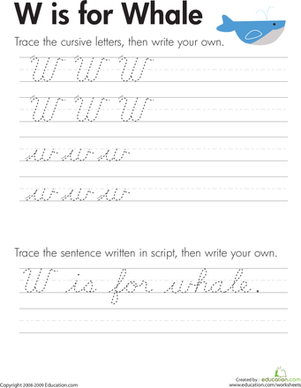 W is for Whale
Trace the cursive letters, then write your own.
W W W
W W W
w w w
w w w
Trace the sentence written in script, then write your own.
W is for whale.
Copyright 2008-2009 Education.com
Created by :
education.com
www.education.com/worksheets